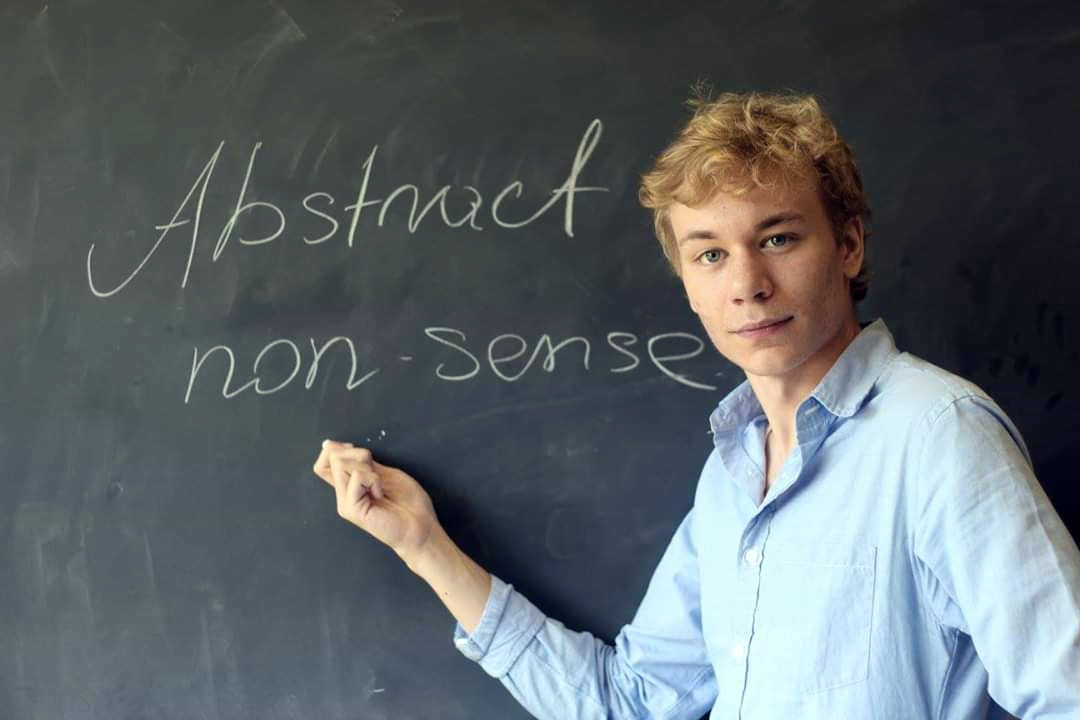 Abstract
non-sense